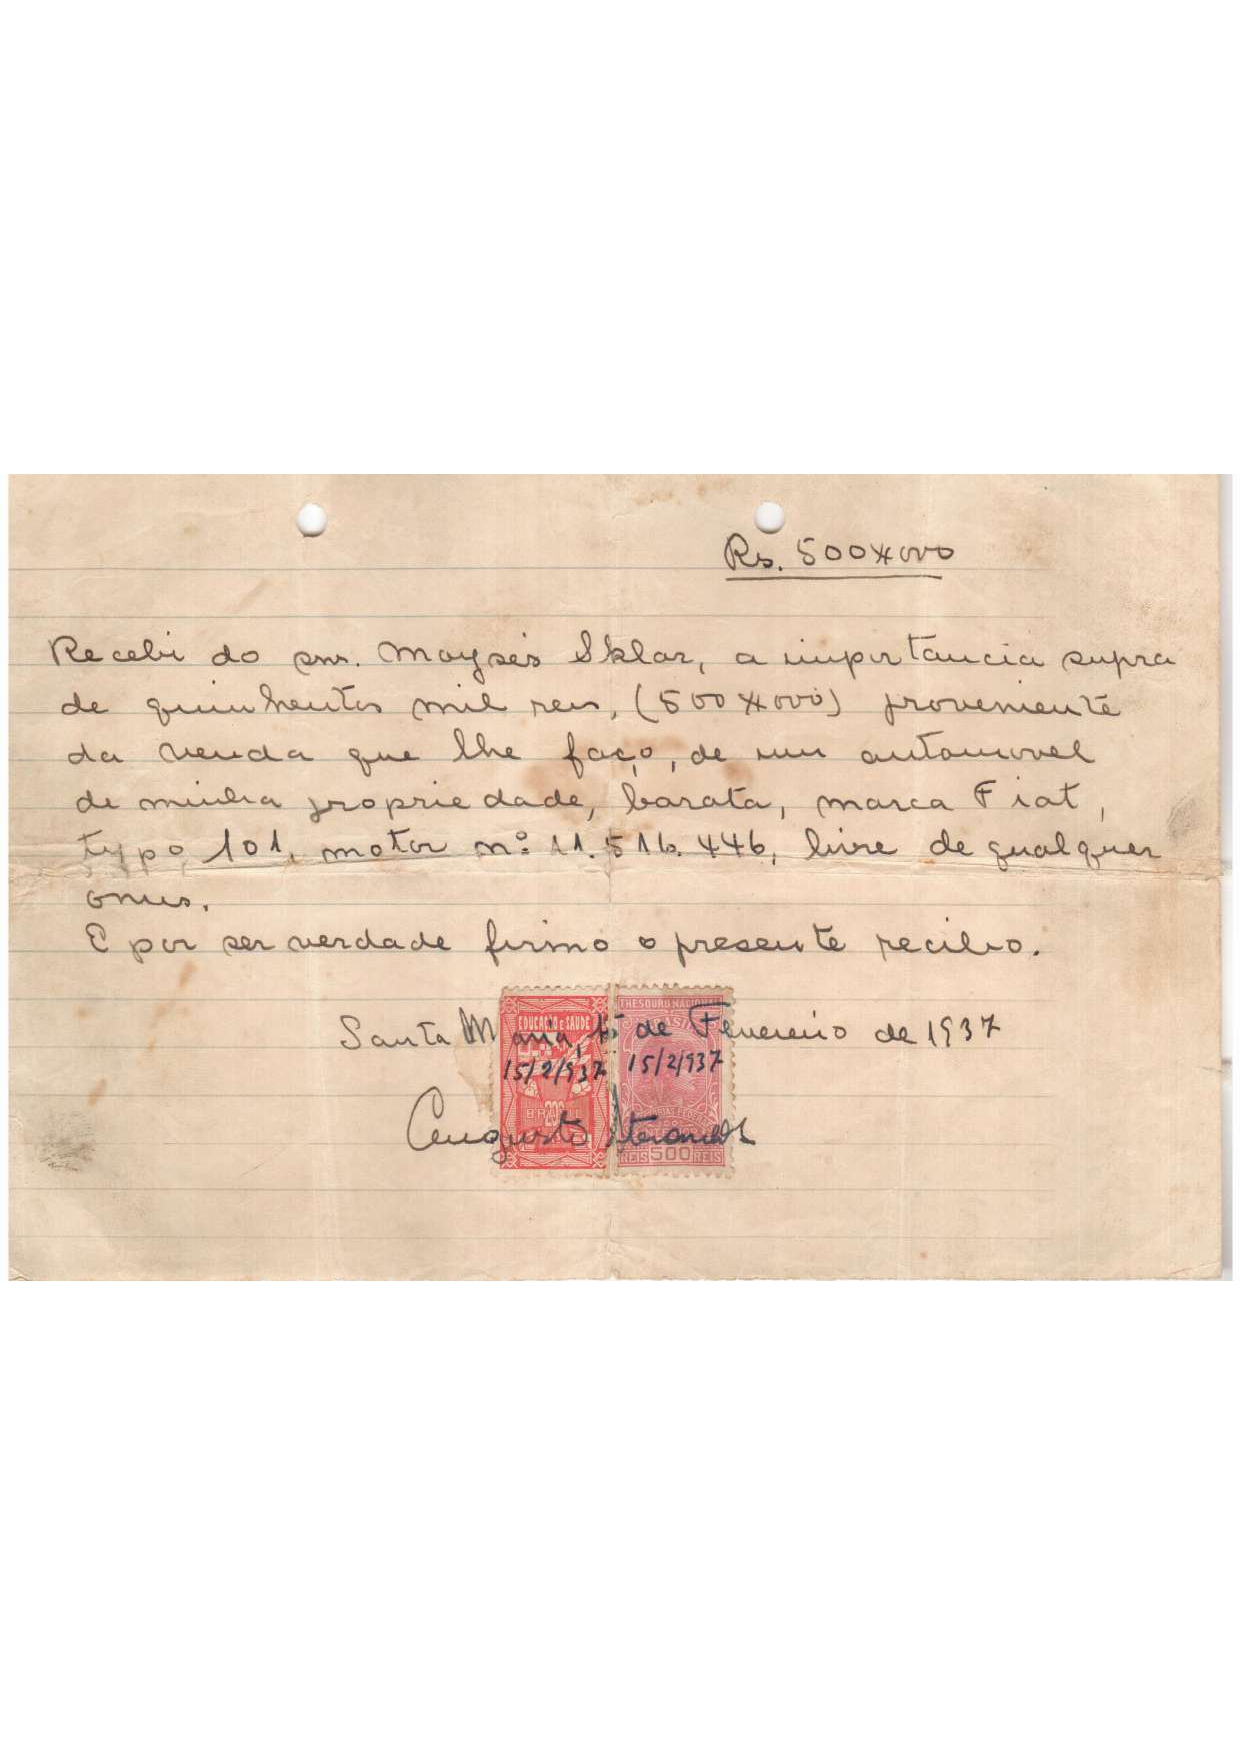 Rs. 500$000
Recebi do snr. Moysés Sklar, a importancia supra
de quinhentos mil reis, (500$000) proveniente
da venda que lhe faço, de um automovel
de minha propriedade, barata, marca Fiat,
typo 101, motor nº 11.516.446, livre de qualquer
onus.
E por ser verdade firmo o presente recibo.
Santa Maria, 15 de Fevereiro de 1937
EDUCAÇÃO E SAUDE
THESOURO NACIONAL
15/2/937 15/2/937
BRASIL
200
Augusto
REIS 500 REIS